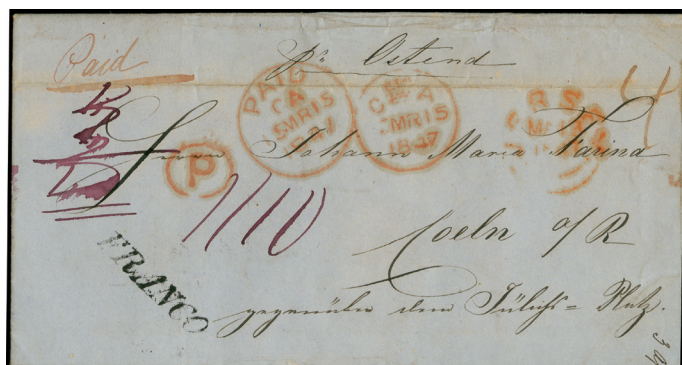 Paid
pr Ostend
PAID
CA
15MR15
1847
CA
MR15
1847
4
Herrn Johann Maria Farina
P
1/10
Coeln a/R
FRANCO
gegenüber dem Jülichs=Platz.